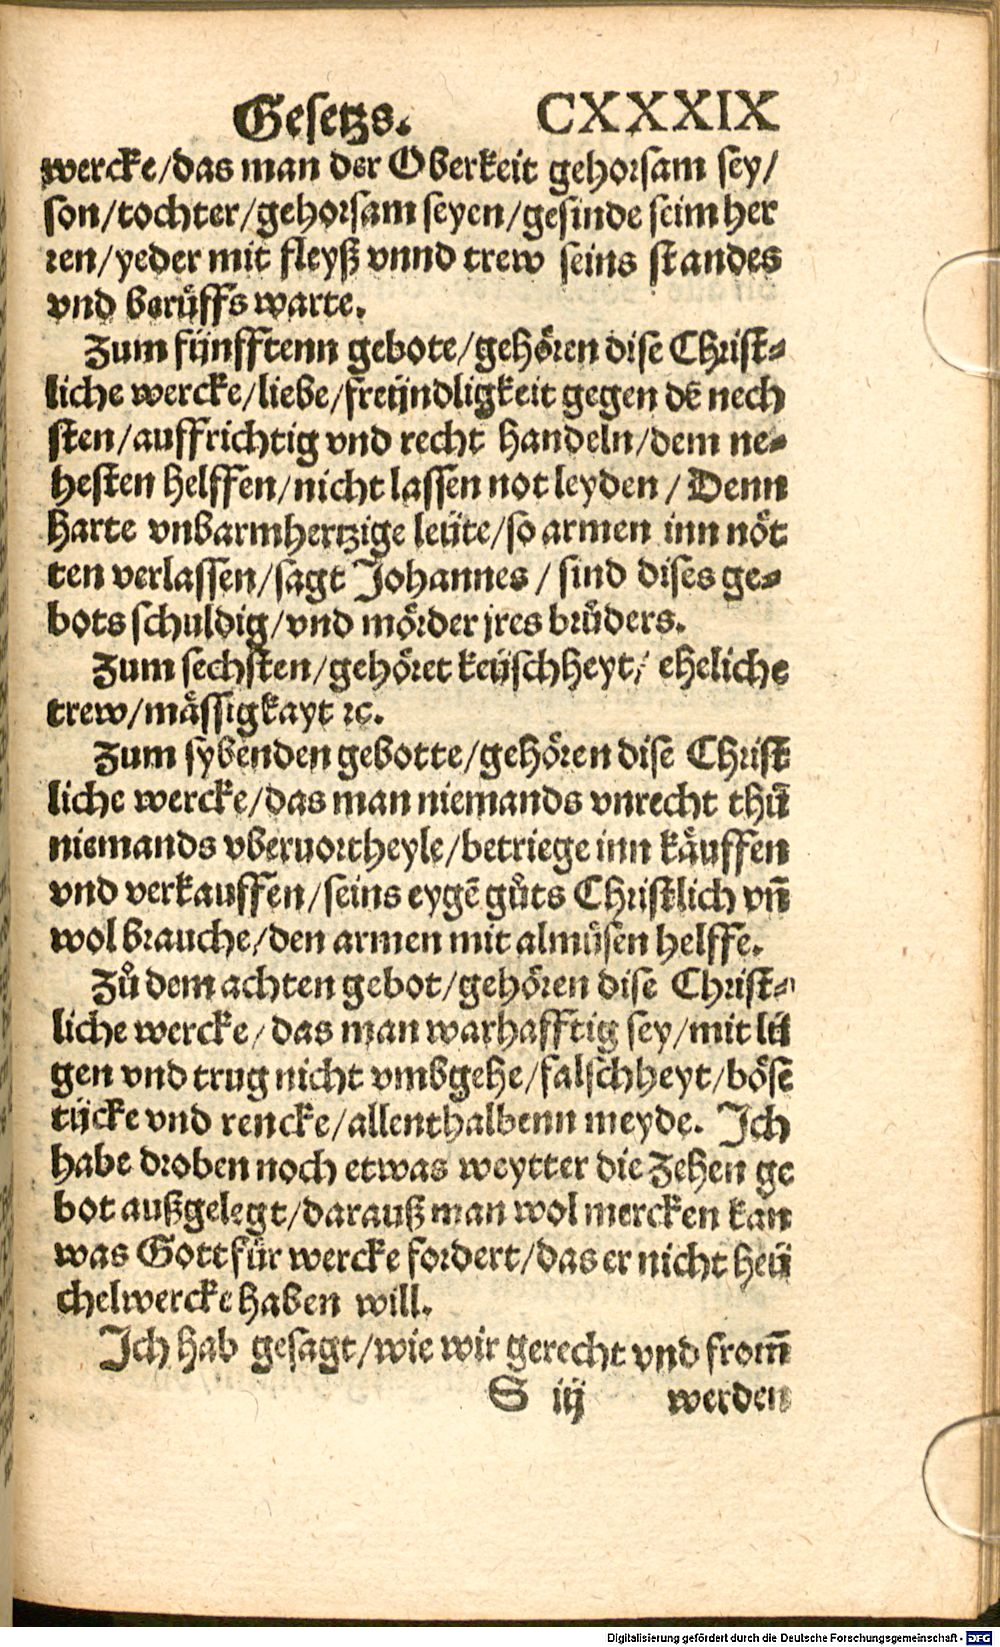 Gesetzs. CXXXIX
wercke/das man der Oberkeit gehorsam sey/
son/tochter/gehorsam seyen/gesinde seim her
ren/yeder mit fleyß vnnd trew seins standes
vnd berůffs warte.
Zum fünfftenn gebote/gehören dise Christ-
liche wercke/liebe/freündligkeit gegen dē nech
sten/auffrichtig vnd recht handeln/dem ne-
hesten helffen/nicht lassen not leyden/ Denn
harte vnbarmhertzige leüte/so armen inn nöt
ten verlassen/sagt Johannes/ sind dises ge-
bots schuldig/vnd mörder jres brůders.
Zum sechsten/gehöret keüschheyt/ eheliche
trew/mässigkayt ꝛc.
Zum sybenden gebotte/gehören dise Christ
liche wercke/das man niemands vnrecht thů
niemands vberuortheyle/betriege inn käuffen
vnd verkauffen/seins eygē gůts Christlich vn̄
wol brauche/den armen mit almůsen helffe.
Zů dem achten gebot/gehören dise Christ-
liche wercke/das man warhafftig sey/mit lü
gen vnd trug nicht vmbgehe/falschheyt/böse
tücke vnd rencke/allenthalbenn meyde. Ich
habe droben noch etwas weytter die Zehen ge
bot außgelegt/darauß man wol mercken kan
was Gott für wercke fordert/das er nicht heü
chelwercke haben will.
Ich hab gesagt/wie wir gerecht vnd from̄
S iij werden
Digitalisierung gefördert durch die Deutsche Forschungsgemeinschaft - DFG